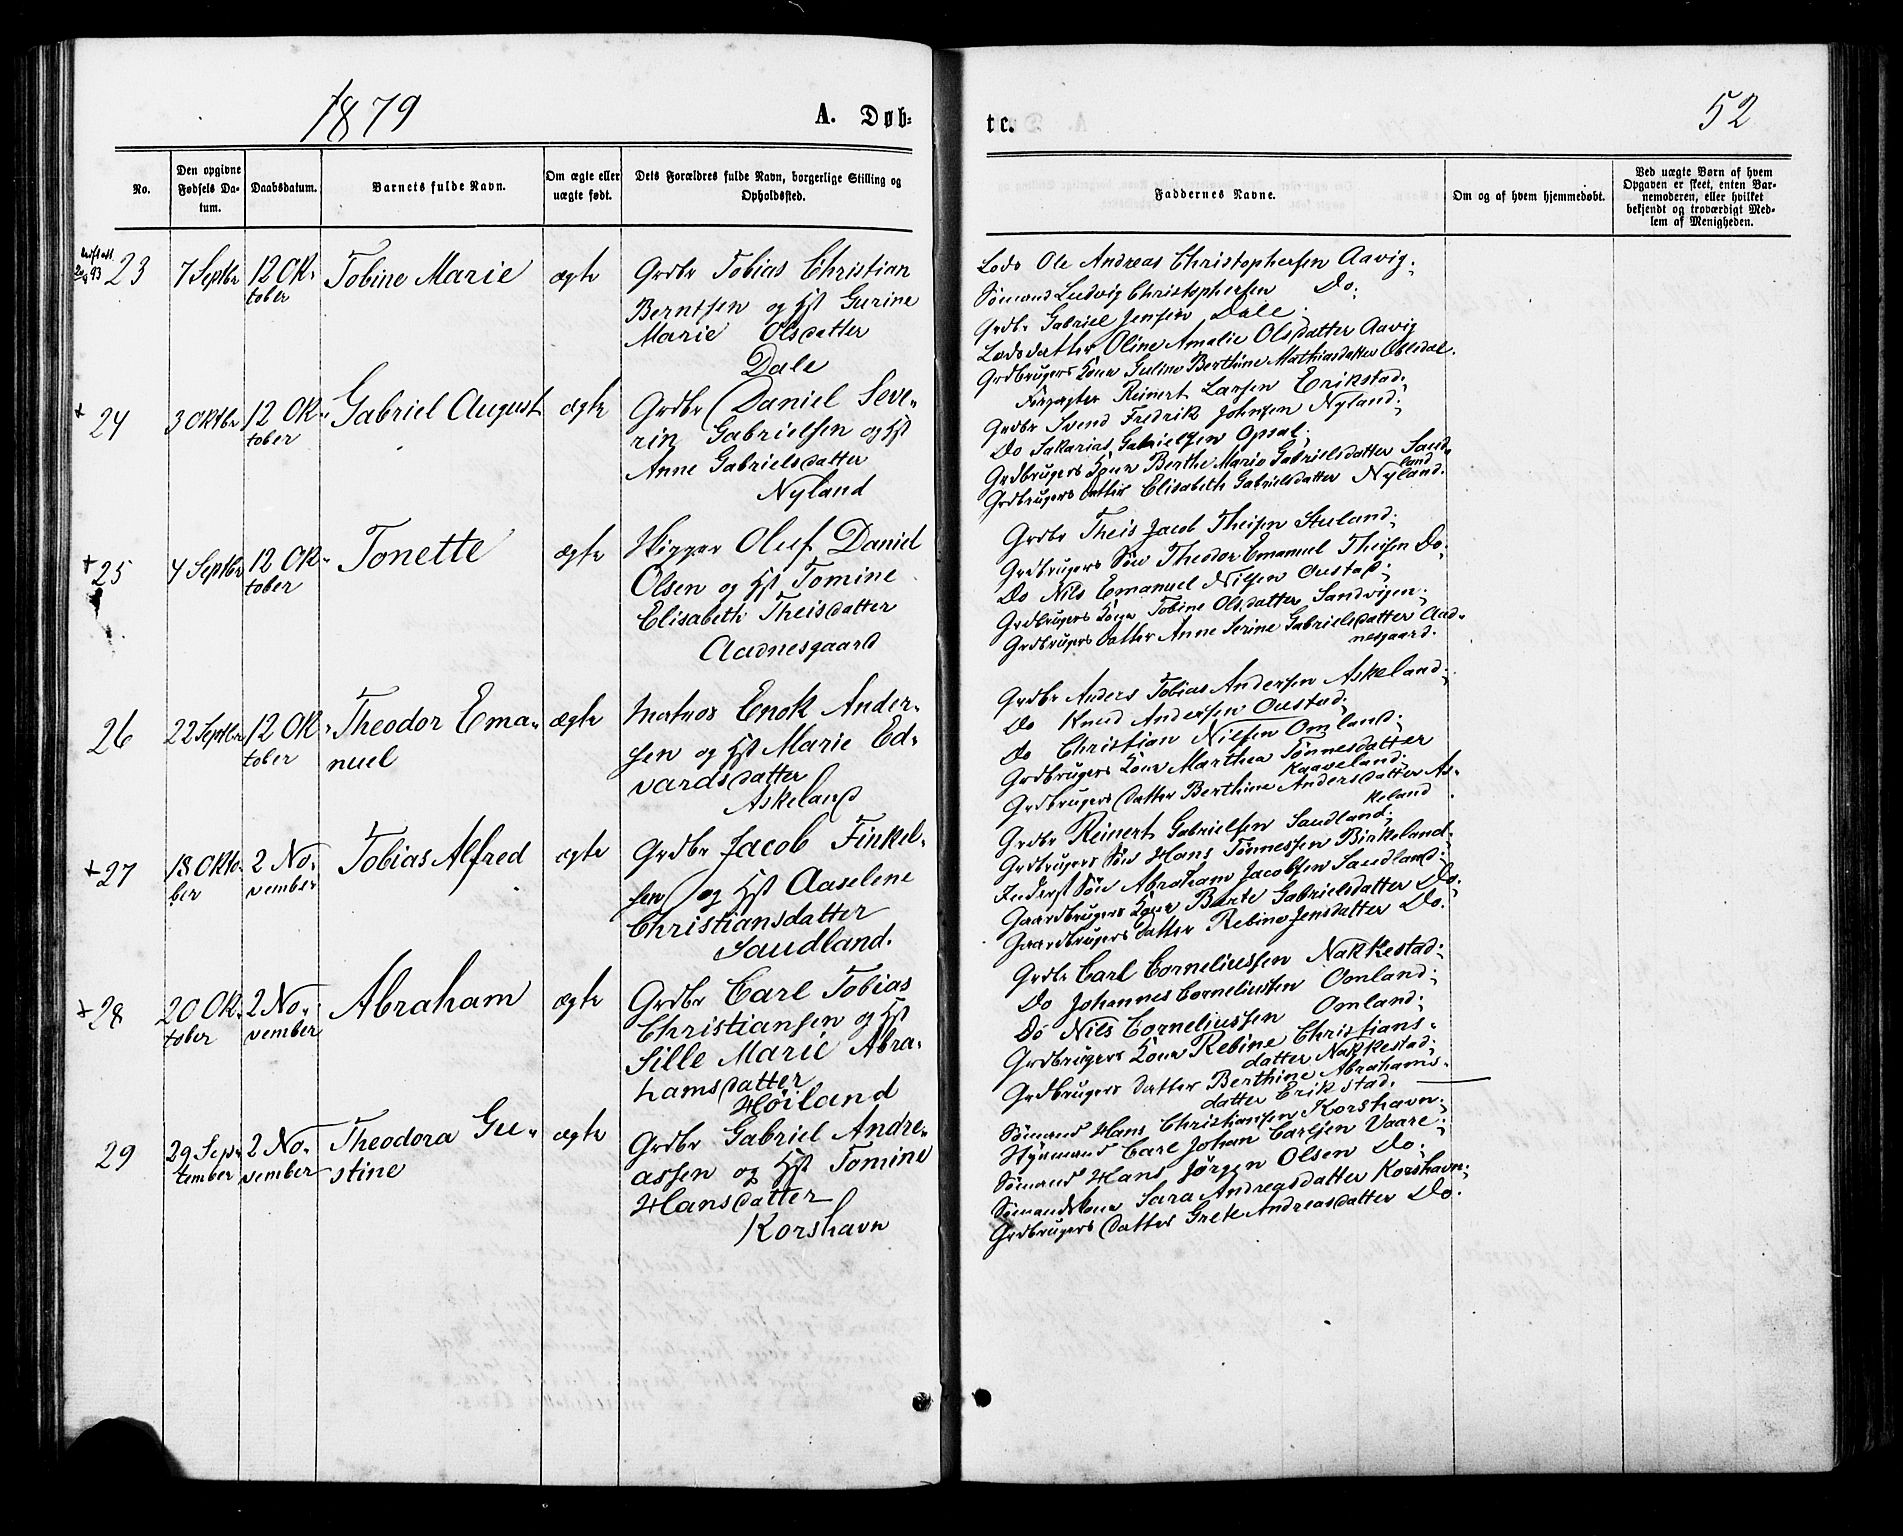 1879
A. Døb=
No.
Den opgivne Fødsels Da-tum.
Daabsdatum.
Barnets fulde Navn.
Om ægte eller uægte født.
Dets Forældres fulde Navn, borgerlige Stilling og Opholdssted.
23
7 Septbr
12 Ok-
tober
Tobine Marie
ægte
Grdbr Tobias Christian
Berntsen og Hst Gurine
Marie Olsdatter
Dale
24
3 Oktbr
12 Ok-
tober
Gabriel August
ægte
Grdbr Daniel Seve-
rin Gabrielsen og Hst
Anne Gabrielsdatter
Nyland
25
4 Septbr
12 Ok-
tober
Tonette
ægte
Skipper Oluf Daniel
Olsen og Hst Tomine
Elisabeth Theisdatter
Aadnesgaard
26
22 Septbr
12 Ok-
tober
Theodor Ema-
nuel
ægte
Matros Enok Ander-
sen og Hst Marie Ed-
vardsdatter
Askeland
27
13 Okto-
ber
2 No-
vember
Tobias Alfred
ægte
Grdbr Jacob Finkel-
sen og Hst Aaselene
Christiansdatter
Saudland.
28
20 Ok-
tober
2 No-
vember
Abraham
ægte
Grdbr Carl Tobias
Christiansen og Hst
Sille Marie Abra-
hamsdatter
Høiland
29
29 Sep-
tember
2 No-
vember
Theodora Gu-
stine
ægte
Grdbr Gabriel Andre-
assen og Hst Tomine
Hansdatter
Korshavn
te.
52
Faddernes Navne.
Om og af hvem hjemmedøbt.
Ved uægte Børn af hvem
Opgaven er skeet, enten Bar-
nemoderen, eller hvilket
bekjendt og troværdigt Med-
lem af Menigheden.
Lods Ole Andreas Christophersen Aavig;
Sømand Ludvig Christophersen Do;
Grdbr Gabriel Jensen Dale;
Lodsdatter Oline Amalie Olsdatter Aavig
Grdbrugers Kone Guline Berthine Mathiasdatter
Forpagter Reinert Larsen Erikstad;
Grdbr Svend Fredrik Johnsen Nyland;
Do Sakarias Gabrielsen Opsal;
Grdbrugers Kone Berthe Marie Gabrielsdatter Saud-
land.
Grdbrugers Datter Elisabeth Gabrielsdatter Nyland.
Grdbr Theis Jacob Theisen Stuland;
Grdbrugers Søn Theodor Emanuel Theisen Do;
Do Nils Emanuel Nilsen Oustad;
Grdbrugers Kone Tobine Olsdatter Sandvigen;
Grdbrugers Datter Anne Serine Gabrielsdatter Aad-
nesgaard.
Grdbr Anders Tobias Andersen Askeland;
Do Knud Andersen Oustad;
Do Christian Nilsen Omland;
Grdbrugers Kone Marthea Tønnesdatter
Kaaveland;
Grdbrugers Datter Berthine Andersdatter As-
keland.
Grdbr Reinert Gabrielsen Saudland;
Grdbrugers Søn Hans Tønnessen Birkeland;
Inderst Søn Abraham Jacobsen Saudland;
Gaardbrugers Kone Berte Gabrielsdatter Do;
Gaardbrugers Datter Rebine Jensdatter Do.
Grdbr Carl Corneliussen Nakkestad;
Do Johannes Corneliussen Omland;
Do Nils Corneliussen Omland;
Grdbrugers Kone Rebine Christians-
datter Nakkestad;
Grdbrugers Datter Berthine Abrahams-
datter Erikstad.
Sømand Hans Christiansen Korshavn;
Styrmand Carl Johan Carlsen Vaare;
Sømand Hans Jørgen Olsen Do;
Sømandskone Sara Andreasdatter Korshavn;
Grdbrugers Datter Grete Andreasdatter Do.